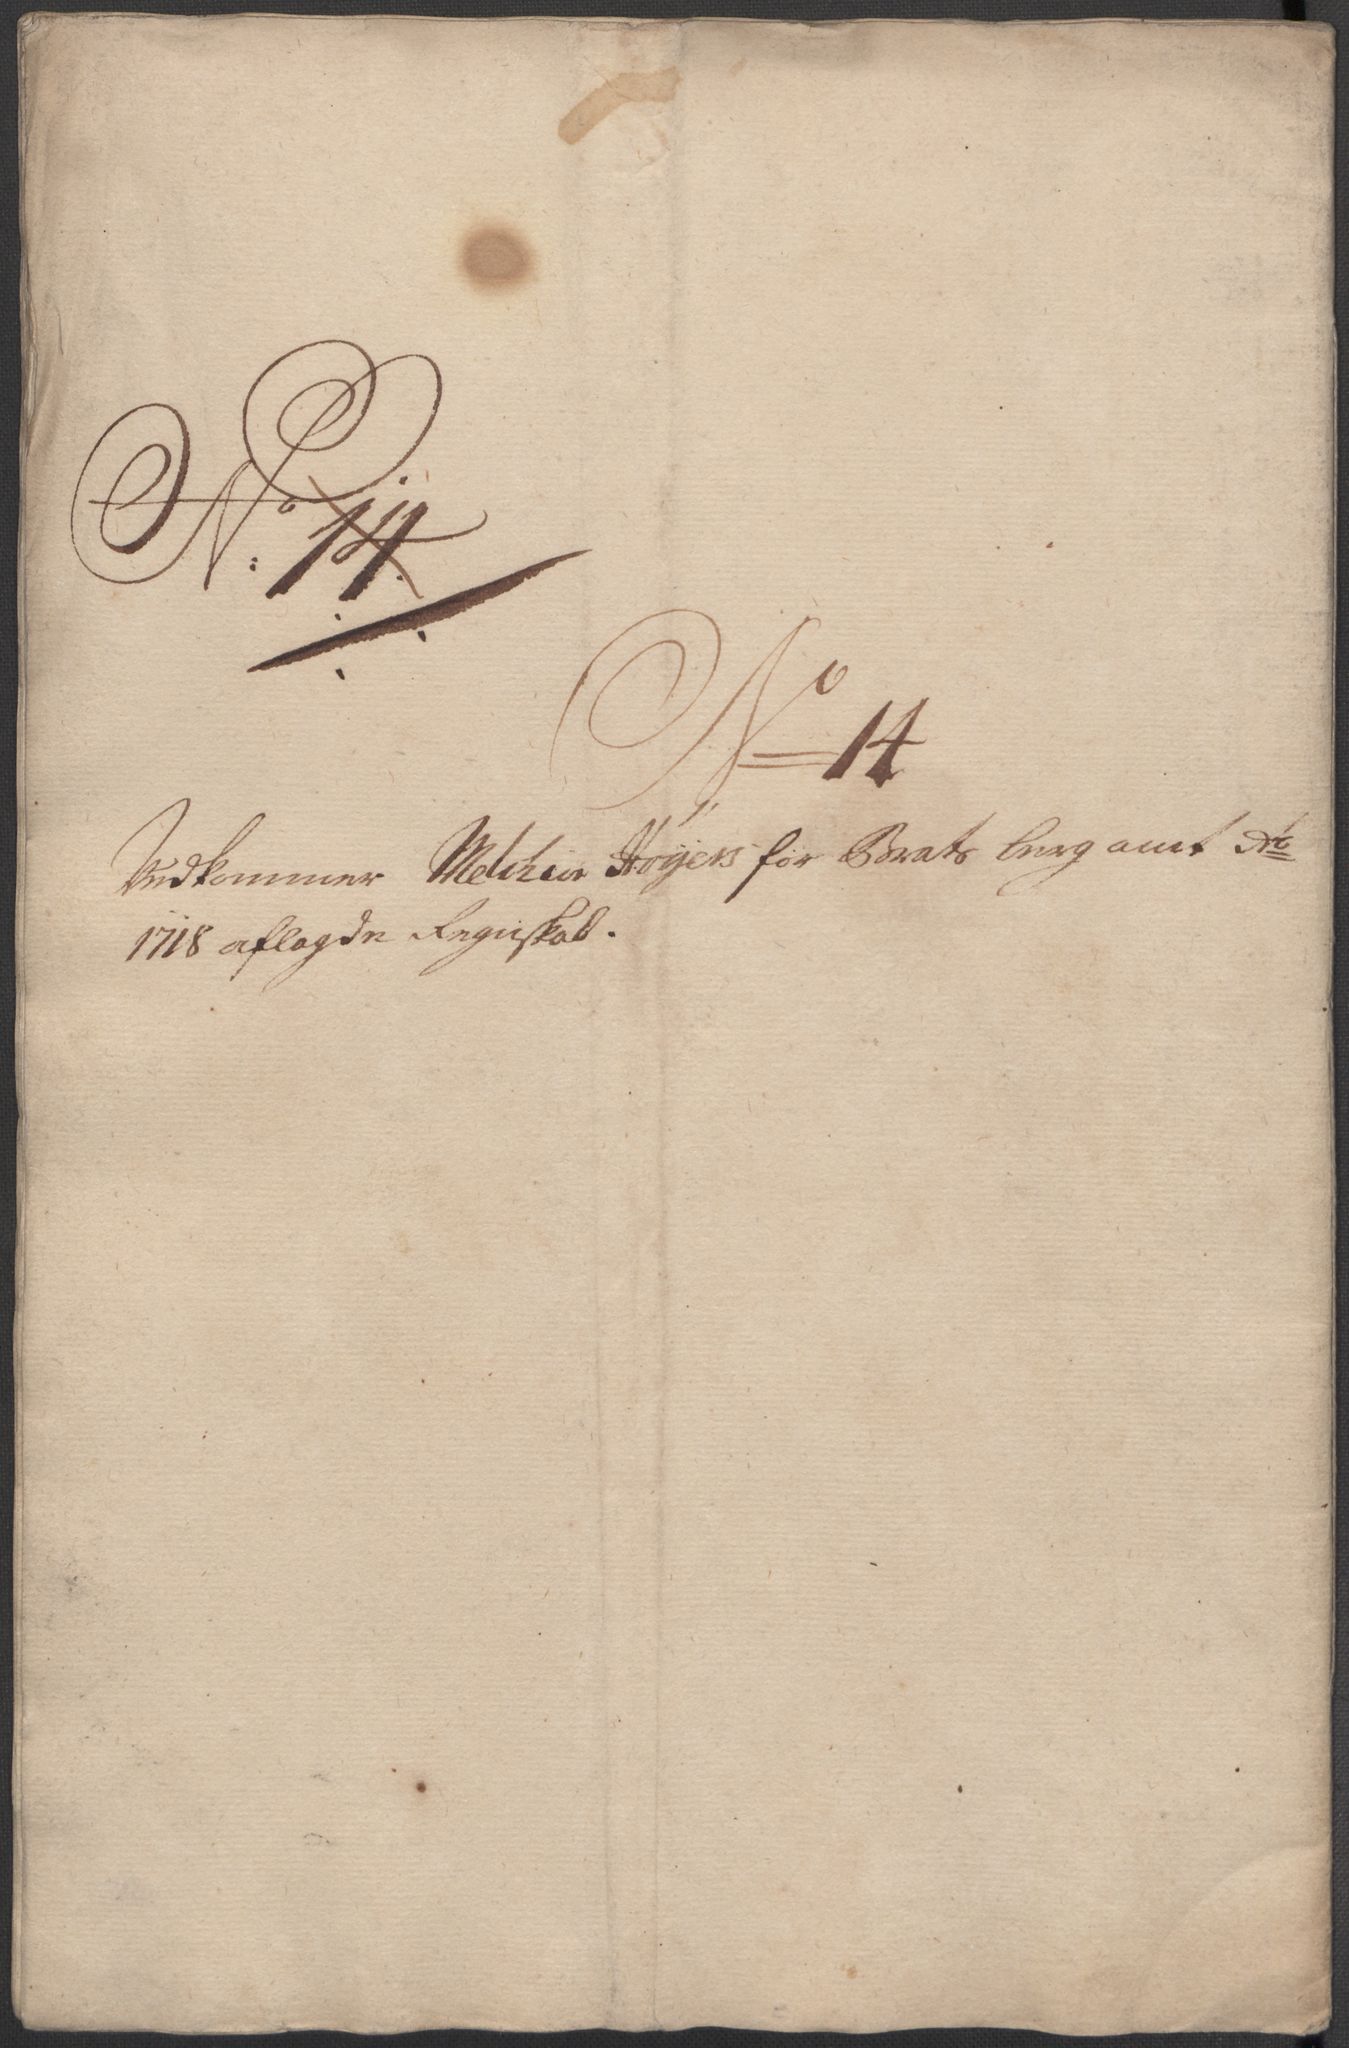 No: 14
No 14
Vedkommer Melchior Høyers for Bratsberg amt Ao
1718 aflagde Regnskab.